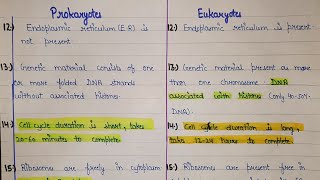 Prokaryotes
Eukaryotes
12.) Endoplasmic reticulum (E.R) is
not present.
12.) Endoplasmic reticulum is present
13.) Genetic material consists of one
or more folded DNA strands
without associated histone.
13.) Genetic material present as more
than one chromosome DNA
associated with histone (only 40-50%
DNA).
14.) Cell cycle duration is short, takes
20-60 minutes to complete
14.) Cell cycle duration is long,
takes 12-24 hours to complete.
15.) Ribosomes are freely in cytoplasm
15.) Ribosomes are present free in